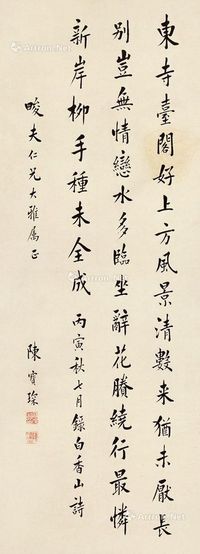 東寺臺閣好上方風景清數来猶未厭長
別豈無情戀水多臨坐辭花賸繞行最憐
新岸柳手種未全成 丙寅秋七月錄白香山詩
畯夫仁兄大雅属正
陳寳琛